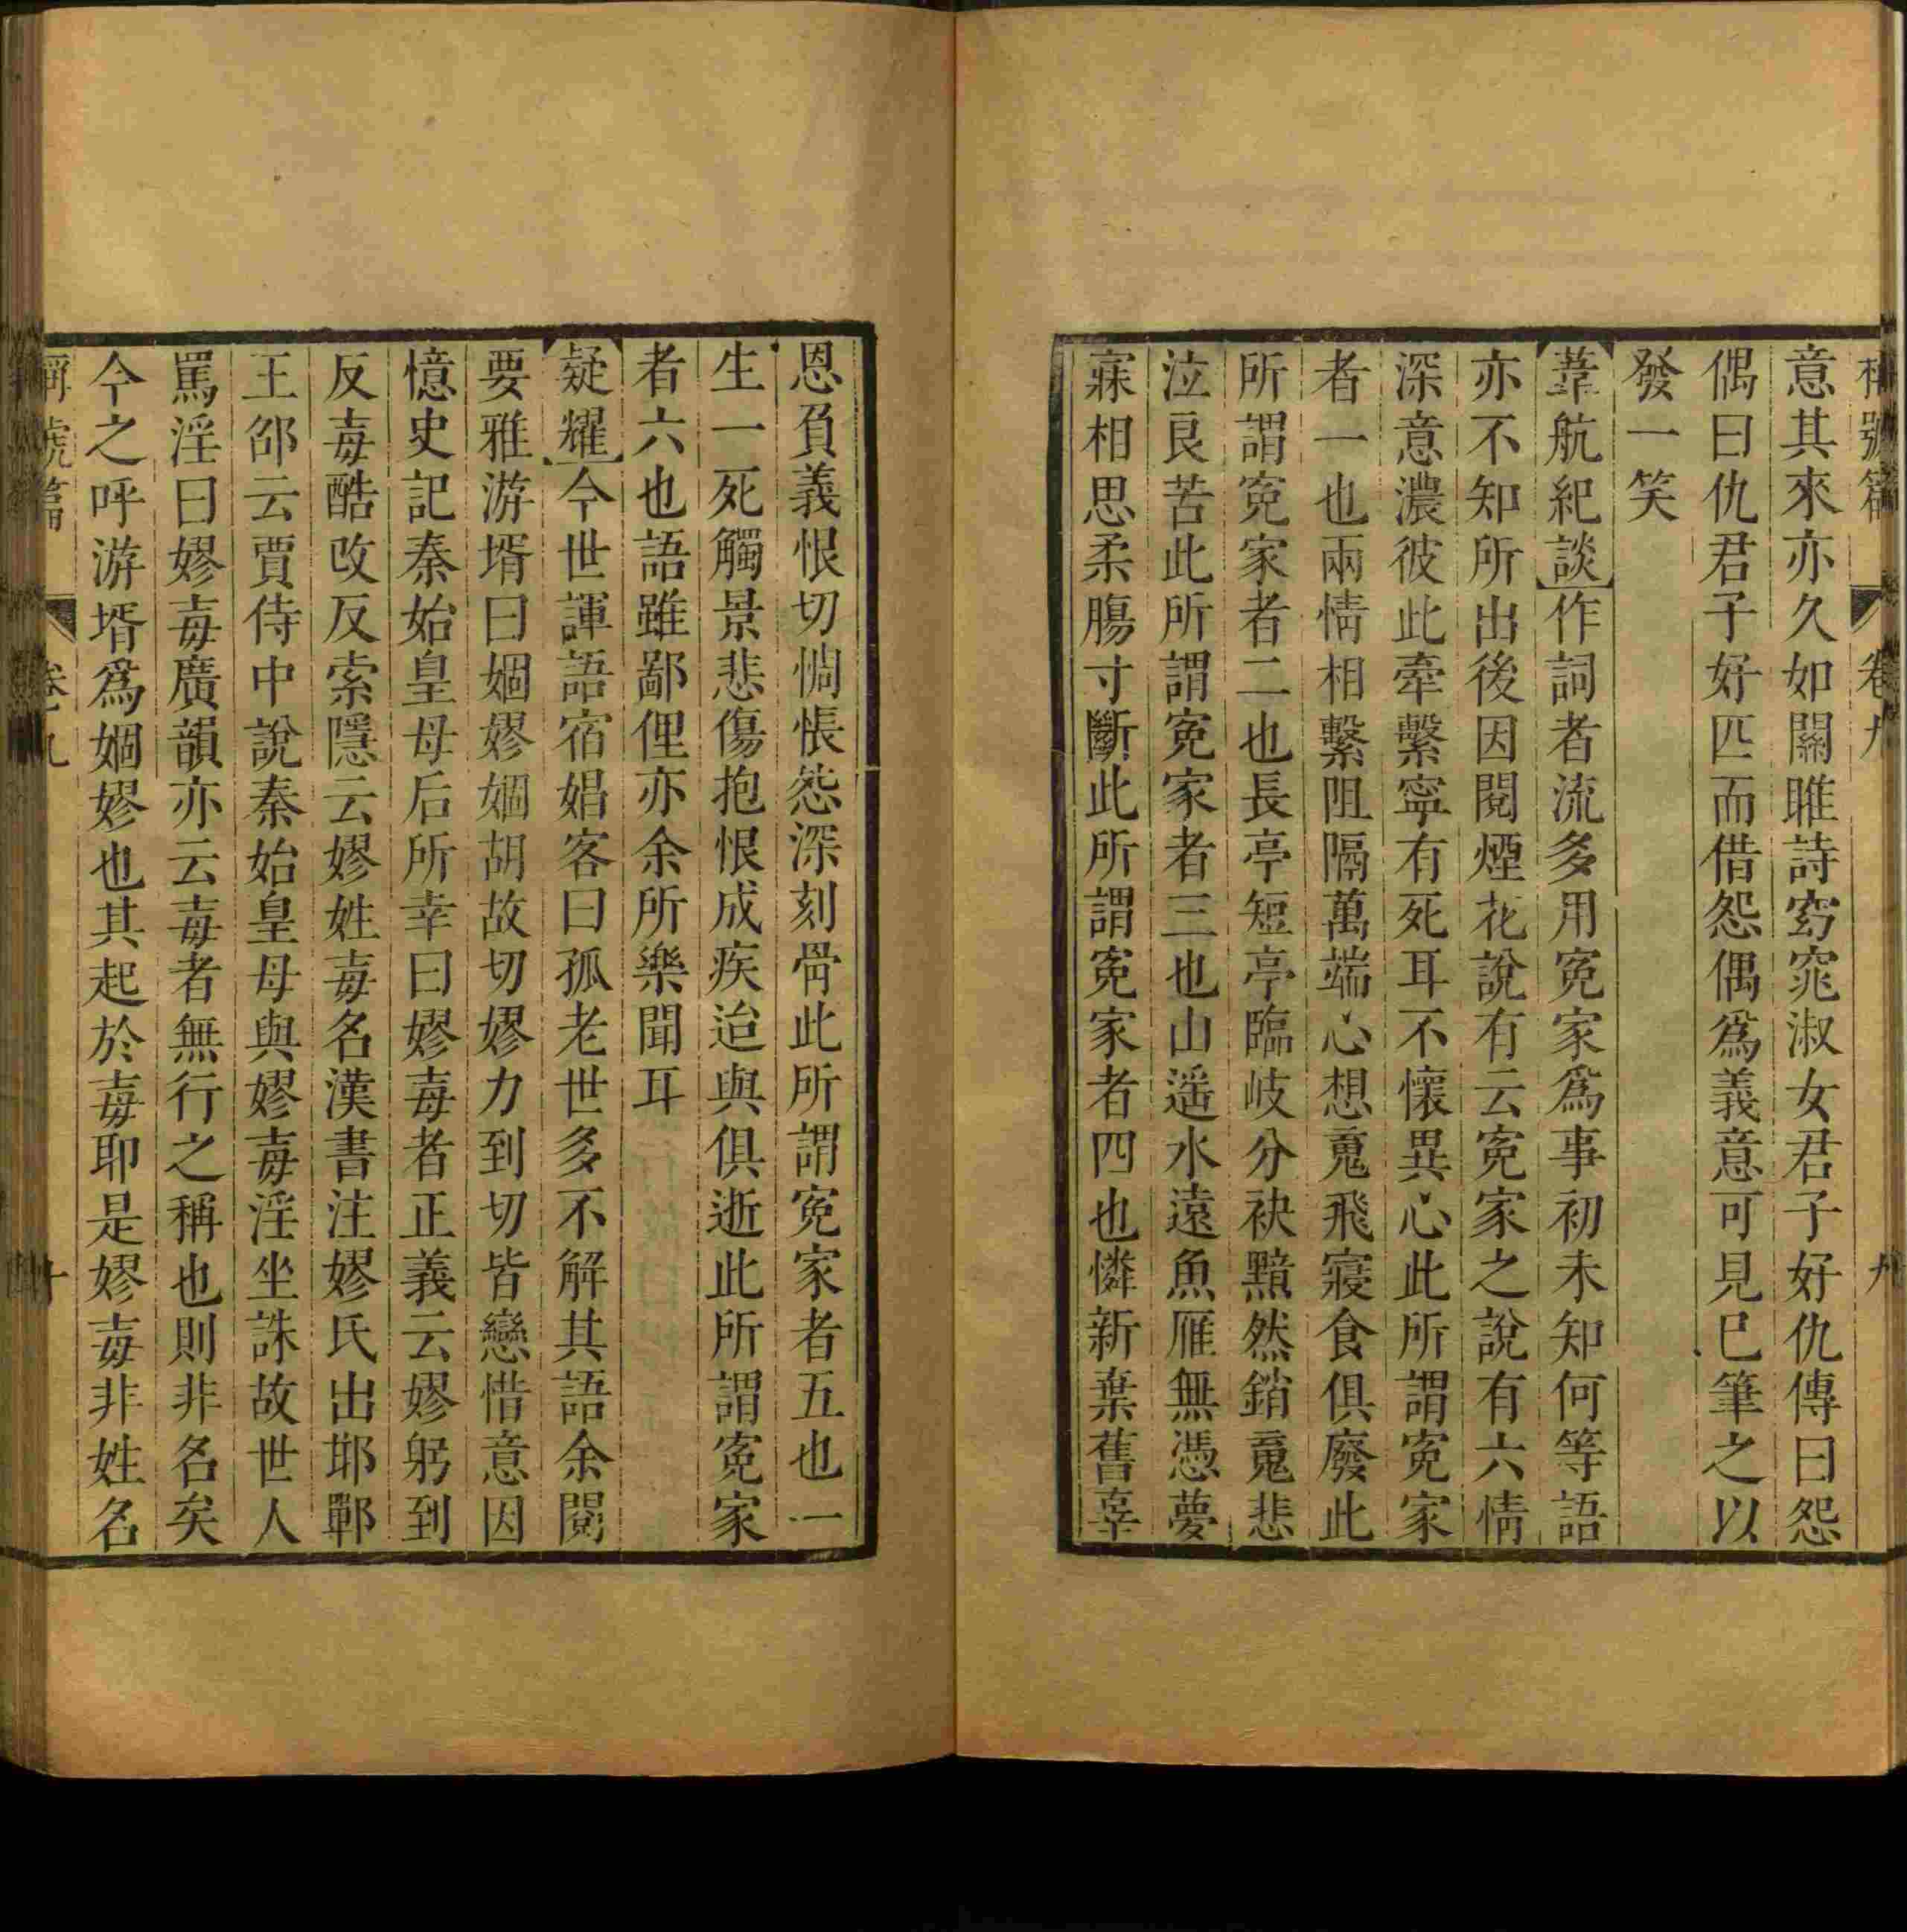 稱號篇 卷九 九
意其來亦久如關雎詩窈窕淑女君子好仇傳曰怨
偶曰仇君子好匹而借怨偶爲義意可見巳筆之以
發一笑
【葦航紀談】作詞者流多用寃家爲事初未知何等語
亦不知所出後因閱煙花說有云寃家之說有六情
深意濃彼此牽繫寧有死耳不懷異心此所謂寃家
者一也兩情相繫阻隔萬端心想䰟飛寢食俱廢此
所謂寃家者二也長亭短亭臨岐分袂黯然銷䰟悲
泣良苦此所謂寃家者三也山遥水遠魚雁無憑夢
寐相思柔腸寸斷此所謂寃家者四也憐新棄舊辜
恩負義恨切惆悵怨深刻骨此所謂寃家者五也一
生一死觸景悲傷抱恨成疾迨與俱逝此所謂寃家
者六也語雖鄙俚亦余所樂聞耳
【疑耀】今世諢語宿娼客曰孤老世多不解其語余閱
要雅游壻曰婟嫪婟胡故切嫪力到切皆戀惜意因
憶史記秦始皇母后所幸曰嫪毐者正義云嫪躬到
反毐酷改反索隱云嫪姓毐名漢書注嫪氏出邯鄲
王邵云賈侍中說秦始皇母與嫪毐淫坐誅故世人
罵淫曰嫪毐廣韻亦云毐者無行之稱也則非名矣
今之呼游壻爲婟嫪也其起於毐耶是嫪毐非姓名
稱號篇 卷九 十